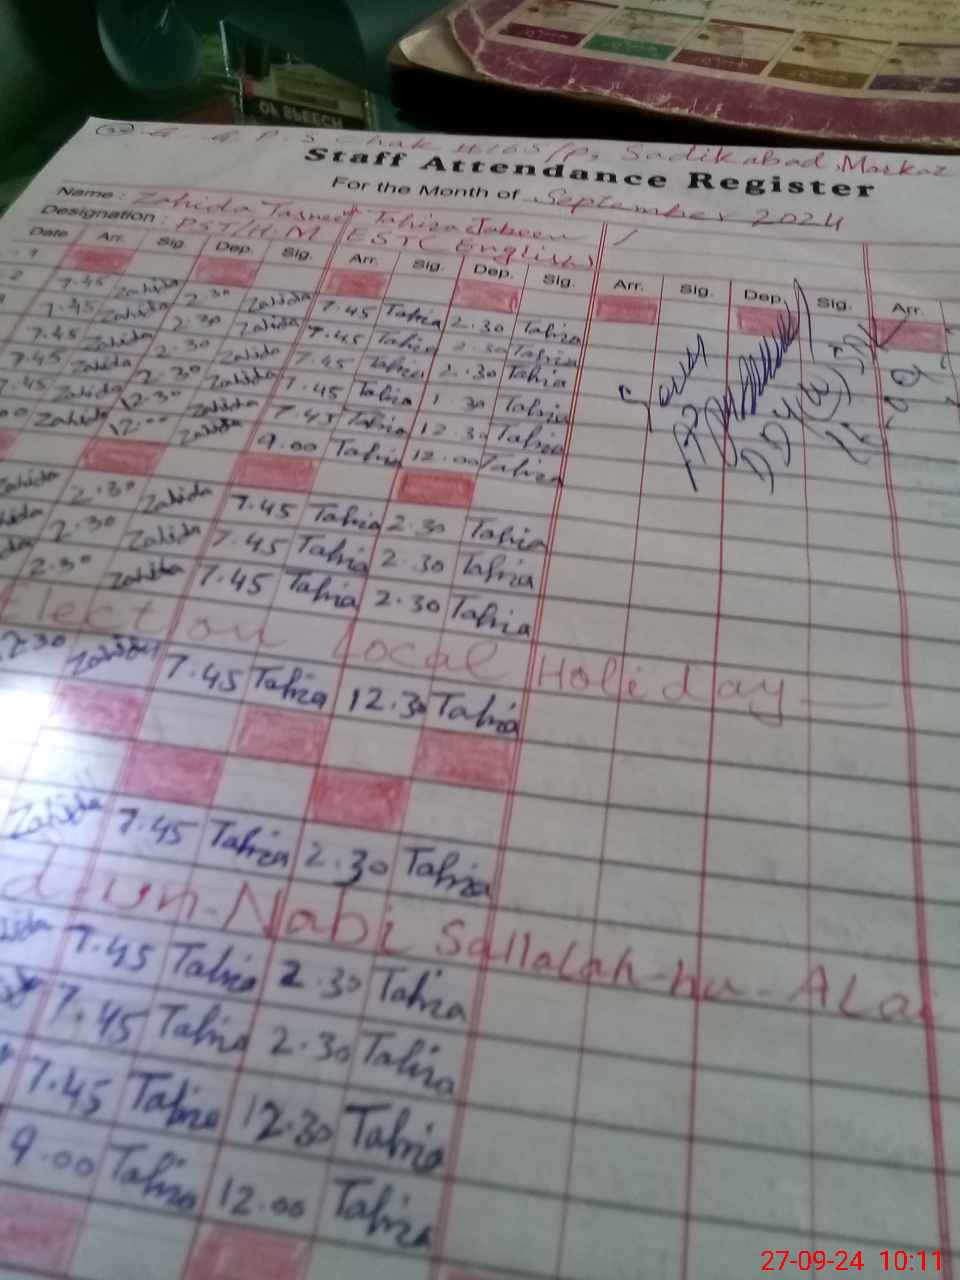 G. G. P. S. Chak #165/P, Sadikabad, Markaz
Staff Attendance Register
For the Month of September 2024
Name: Zahida Tasneem Tahira Jabeen
Designation: PST/H.M EST(English)
Date Arr. Sig. Dep. Sig. Arr. Sig. Dep. Sig. Arr. Sig. Dep. Sig. Arr.
1
2 7.45 Zahida 2.30 Zahida 7.45 Tahira 2.30 Tahira
7.45 Zahida 2.30 Zahida 7.45 Tahira 2.30 Tahira
7.45 Zahida 2.30 Zahida 7.45 Tahira 2.30 Tahira
7.45 Zahida 2.30 Zahida 7.45 Tahira 1.30 Tahira
7.45 Zahida 12.30 Zahida 7.45 Tahira 12.30 Tahira
00 Zahida 12.00 Zahida 9.00 Tahira 12.00 Tahira
Zahida 2.30 Zahida 7.45 Tahira 2.30 Tahira
2.30 Zahida 7.45 Tahira 2.30 Tahira
2.30 Zahida 7.45 Tahira 2.30 Tahira
Election Local Holiday
2.30 Zahida 7.45 Tahira 12.30 Tahira
Zahida 7.45 Tahira 2.30 Tahira
d-un-Nabi Sallalah-hu-ALai
7.45 Tahira 2.30 Tahira
7.45 Tahira 2.30 Tahira
7.45 Tahira 12.30 Tahira
9.00 Tahira 12.00 Tahira
27-09-24 10:11